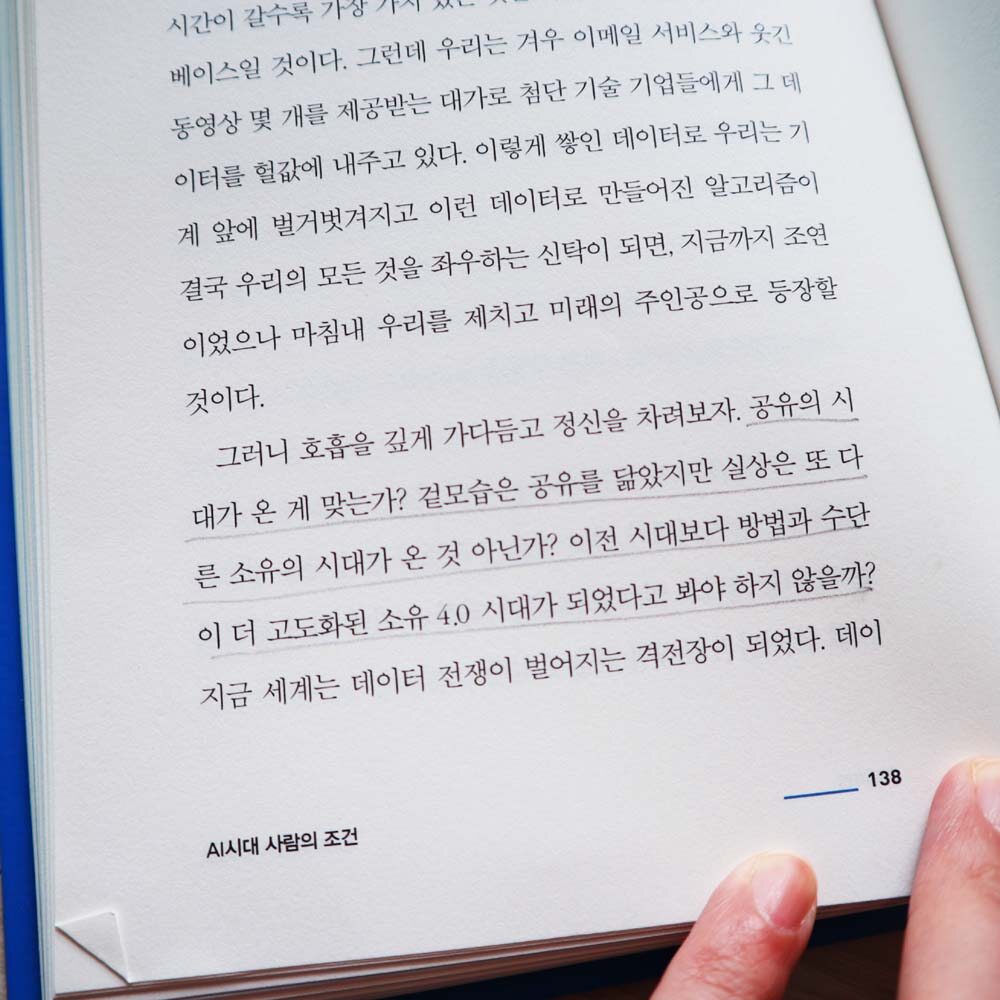 시간이 갈수록 가장 가치 있는
베이스일 것이다. 그런데 우리는 겨우 이메일 서비스와 웃긴
동영상 몇 개를 제공받는 대가로 첨단 기술 기업들에게 그 데
이터를 헐값에 내주고 있다. 이렇게 쌓인 데이터로 우리는 기
계 앞에 벌거벗겨지고 이런 데이터로 만들어진 알고리즘이
결국 우리의 모든 것을 좌우하는 신탁이 되면, 지금까지 조연
이었으나 마침내 우리를 제치고 미래의 주인공으로 등장할
것이다.
그러니 호흡을 깊게 가다듬고 정신을 차려보자. 공유의 시
대가 온 게 맞는가? 겉모습은 공유를 닮았지만 실상은 또 다
른 소유의 시대가 온 것 아닌가? 이전 시대보다 방법과 수단
이 더 고도화된 소유 4.0 시대가 되었다고 봐야 하지 않을까?
지금 세계는 데이터 전쟁이 벌어지는 격전장이 되었다. 데이
138
AI시대 사람의 조건